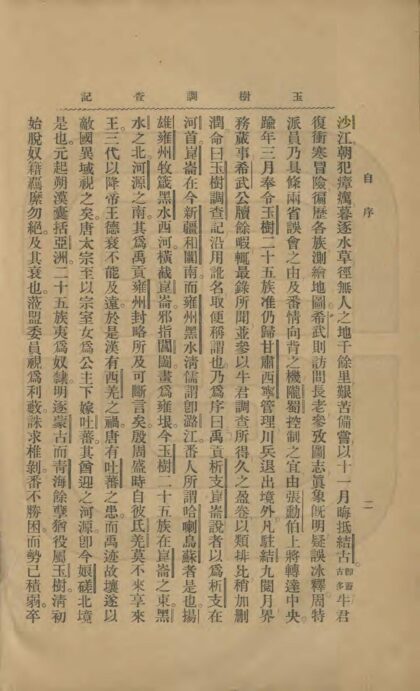 玉樹調查記
自序
二
沙江朝犯瘴癘暮逐水草徑無人之地千餘里艱苦備嘗以十一月晦抵結古卽蓋古多牛君
復衝寒冒險徧歷各族測繪地圖希武則訪問長老參攷圖志眞象旣明疑誤冰釋周特
派員乃具條兩省誤會之由及番情向背之機隴蜀控制之宜由張勳伯上將轉達中央
踰年三月奉令玉樹二十五族准仍歸甘肅西寧管理川兵退出境外凡駐結九閱月界
務蕆事希武公牘餘暇輒最錄所聞並參以牛君調查所得久之盈卷以類排比稍加刪
潤命曰玉樹調查記沿用訛名取便稱謂也乃爲序曰禹貢析支崑崙說者以爲析支在
河首崑崙在今新疆和闐南而雍州黑水清儒謂卽潞江番人所謂哈喇烏蘇者是也揚
雄雍州牧箴黑水西河橫截崑崙邪指閶闔畫爲雍垠今玉樹二十五族在崑崙之東黑
水之北河源之南其爲禹貢雍州封略所及可斷言矣殷周盛時自彼氐羌莫不來享來
王三代以降帝王德衰不能及遠於是漢有西羌之禍唐有吐蕃之患而禹迹故壤遂以
敵國異域視之矣唐太宗至以宗室女爲公主下嫁吐蕃其酋迎之河源卽今娘磋北境
是也元起朔漠囊括亞洲二十五族夷爲奴隸明逐蒙古而青海餘孽猶役屬玉樹清初
始脫奴籍羈縻勿絕及其衰也涖盟委員視爲利藪誅求椎剝番不勝困而勢已積弱卒